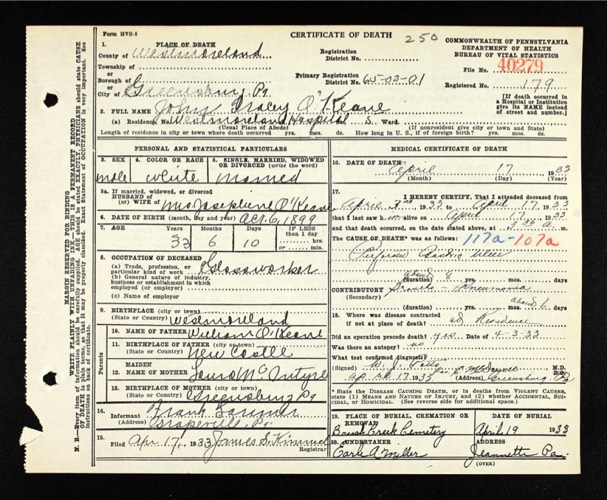 Form HVS-5
CERTIFICATE OF DEATH
250
COMMONWEALTH OF PENNSYLVANIA
DEPARTMENT OF HEALTH
BUREAU OF VITAL STATISTICS
1. PLACE OF DEATH
County of Westmoreland
Township of
Borough of
City of Greensburg Pa
Registration District No.
Primary Registration District No. 65-73-01
File No. 40279
Registered No. 179
[If death occurred in a Hospital or Institution give its NAME instead of street and number.]
2. FULL NAME John O'Keane
(a) Residence, No. Westmoreland Hospital S. Ward.
(Usual Place of Abode) (If nonresident give city or town and state)
Length of residence in city or town where death occurred yrs. mos. ds. How long in U. S., if of foreign birth? yrs. mos. ds.
PERSONAL AND STATISTICAL PARTICULARS
3. SEX
male
4. COLOR OR RACE
white
5. SINGLE, MARRIED, WIDOWED or DIVORCED (write the word)
married
5a. If married, widowed, or divorced
HUSBAND of
(or) WIFE of Mrs Josephine O'Keane
6. DATE OF BIRTH (month, day, and year) Oct. 6, 1899
7. AGE
33 6 10
IF LESS than 1 day
hrs.
or min.
8. OCCUPATION OF DECEASED
(a) Trade, profession, or particular kind of work Glassworker
(b) General nature of industry, business or establishment in which employed (or employer)
(c) Name of employer
9. BIRTHPLACE Westmoreland
(State or Country)
Parents
10. NAME OF FATHER William O'Keane
11. BIRTHPLACE OF FATHER New Castle
(State or Country)
12. MAIDEN NAME OF MOTHER Laura McIntyre
13. BIRTHPLACE OF MOTHER Greensburg Pa
(State or Country)
14. Informant Frank
(Address) Grapeville, Pa.
15. Filed Apr. 17, 1933 James S. Kimmel
Registrar
MEDICAL CERTIFICATE OF DEATH
16. DATE OF DEATH
April 17 1933
(Month) (Day) (Year)
17. I HEREBY CERTIFY, That I attended deceased
from April 3 1933 to April 17 1933
that I last saw h alive on April 17 1933
and that death occurred, on the date stated above, at
The CAUSE OF DEATH* was as follows: 117a-107a
Perforated Gastric Ulcer
yrs. mos. ds.
CONTRIBUTORY Pneumonia
(Secondary)
yrs. mos. ds.
18. Where was disease contracted
if not at place of death? at Residence
Did an operation precede death? yes Date of 4-3-33
Was there an autopsy? no
What test confirmed diagnosis?
(Signed) M. D.
Ap. 17, 1933 (Address) Greensburg Pa
* State the DISEASE CAUSING DEATH, or in deaths from VIOLENT CAUSES, state (1) MEANS AND NATURE OF INJURY, and (2) whether ACCIDENTAL, SUICIDAL, or HOMICIDAL. (See reverse side for additional space.)
19. PLACE OF BURIAL, CREMATION OR REMOVAL
Brush Creek Cemetery
DATE OF BURIAL
April 19 1933
20. UNDERTAKER
Earl A. Miller
Jeannette Pa.
(OVER)